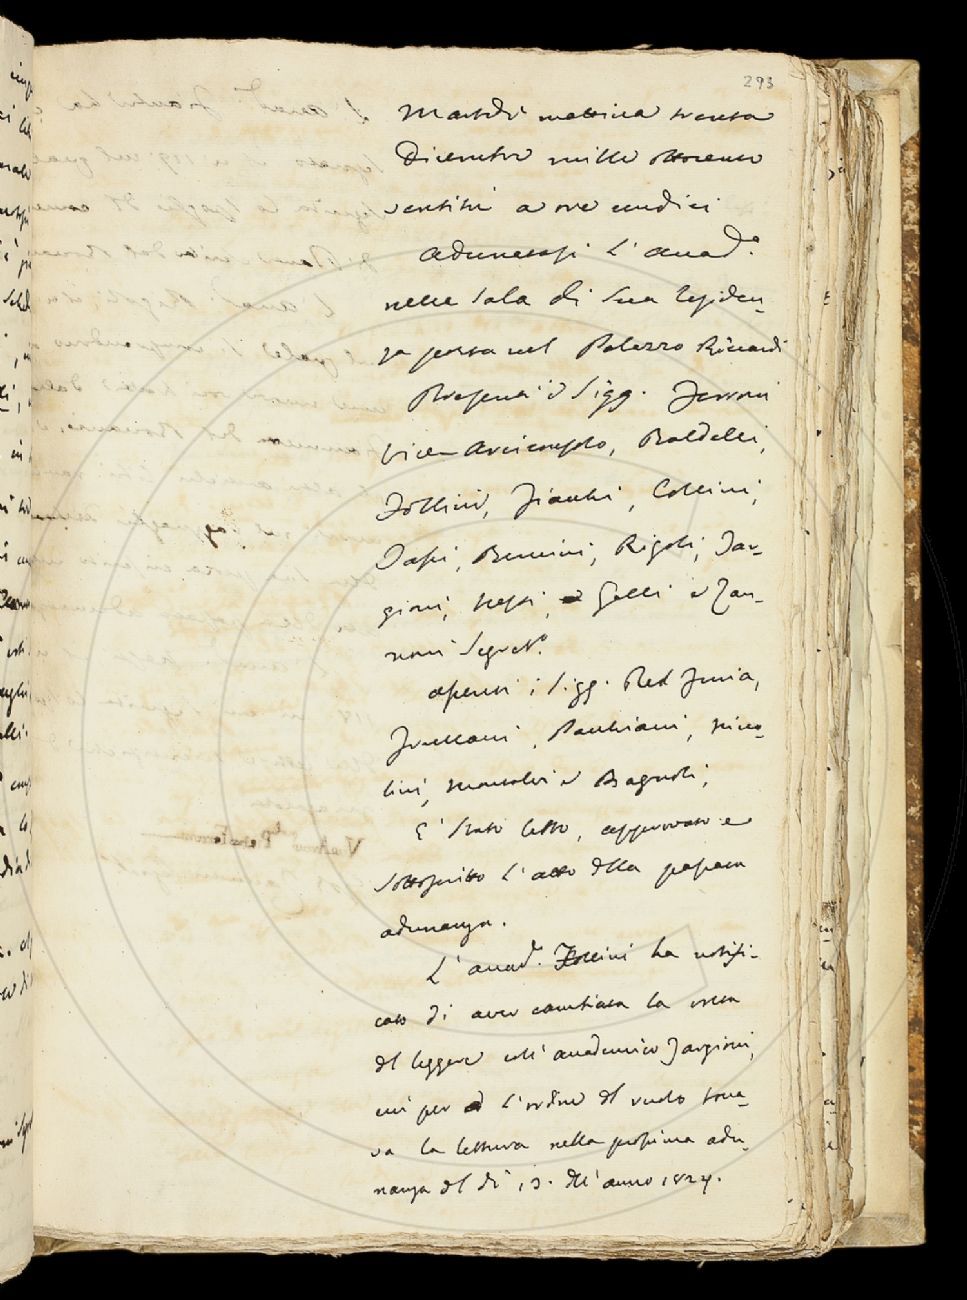 293
Martedì mattina trenta
Dicembre mille ottocento
ventitrè a ore undici
Adunatasi l'Accad.a
nelle Sala di Sua residen-
za posta nel Palazzo Riccardi
Presenti i Sigg. Ferroni
Vice-Arciconsolo, Baldelli,
Follini, Fiacchi, Collini,
Sarchiani
Papi, Bencini, Rigoli, Tar-
gioni, Nesti, Gelli e Zan-
noni Segret.o
assenti i Sigg. Del Furia,
Frullani, Niccо-
lini, e Bagnoli,
E' Stato letto, approvato e
Sottoscritto l'atto della passata
adunanza.
L'Accad.o Follini ha notifi-
cato di aver cambiata la volta
del leggere coll'accademico Targioni,
cui per l'ordine del ruolo tocca-
va la lettura nella prossima adu-
nanza del dì 13. dell'anno 1824.